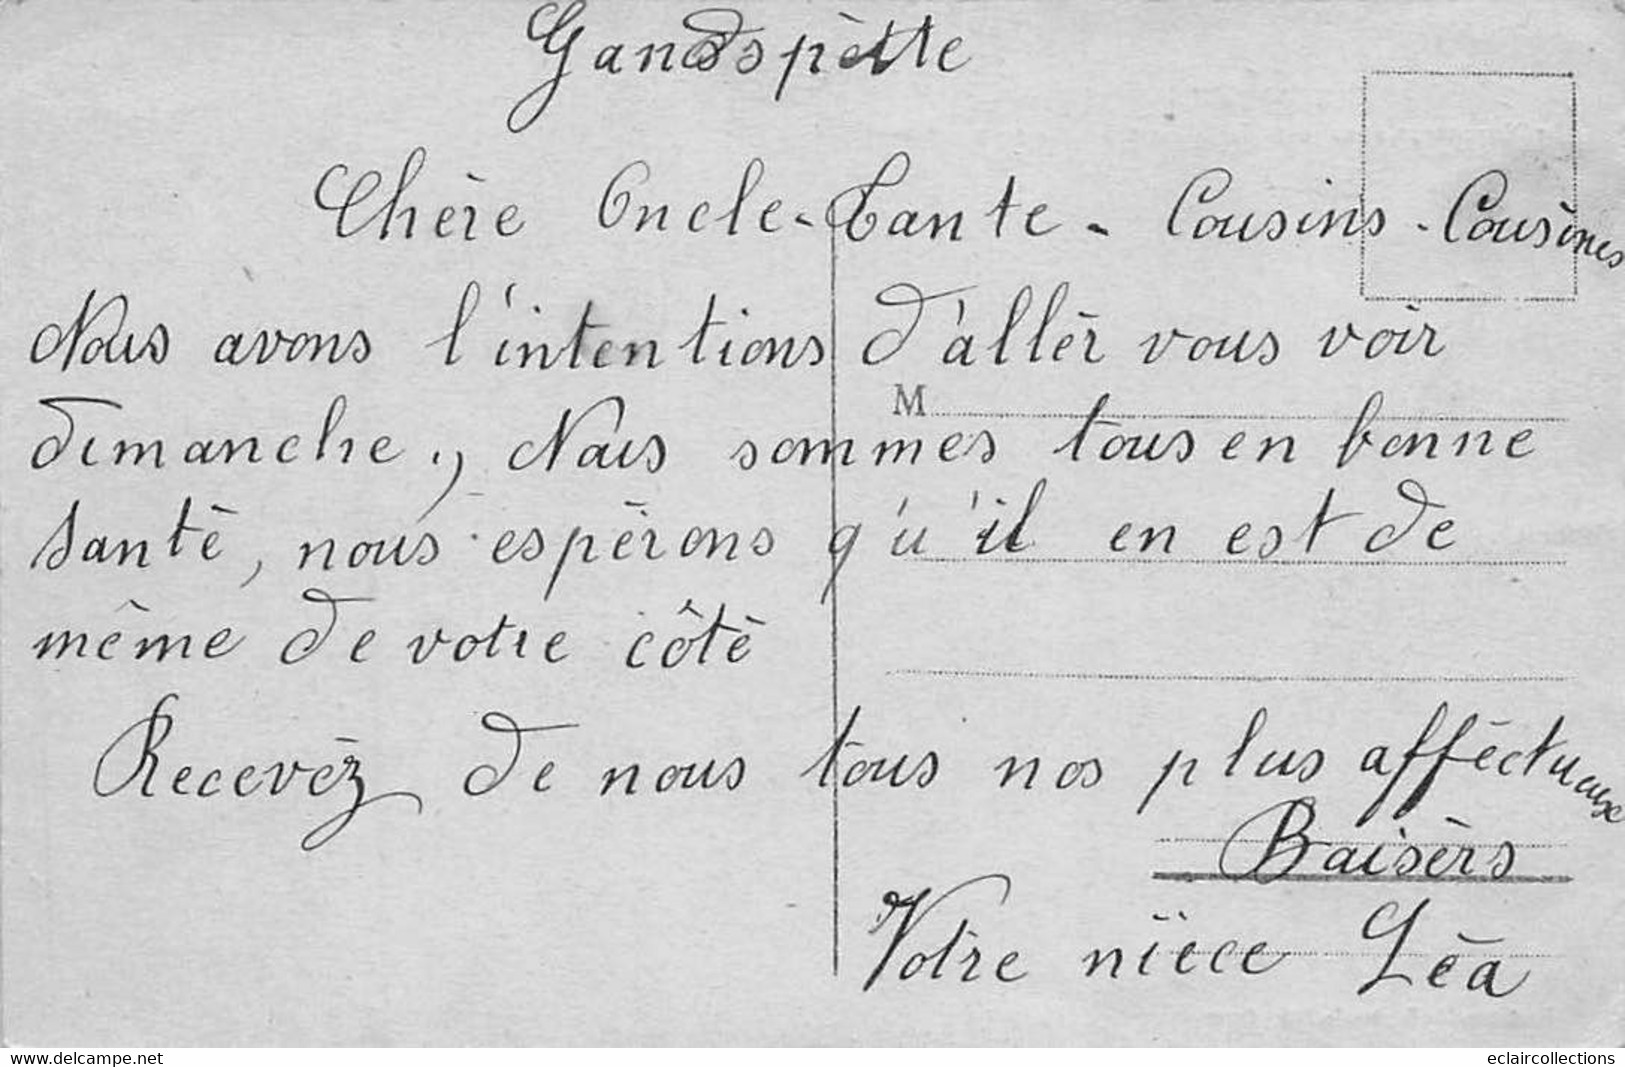 Gandspètte
Chère Oncle - Tante - Cousins - Cousines
Nous avons l'intentions d'allér vous voir
M
dimanche., Nous sommes tous en bonne
santè, nous espèrons qu'il en est de
même de votre côtè
Recevèz de nous tous nos plus affèctueux
Baisèrs
Votre nïece Lèa
www.delcampe.net
eclaircollections